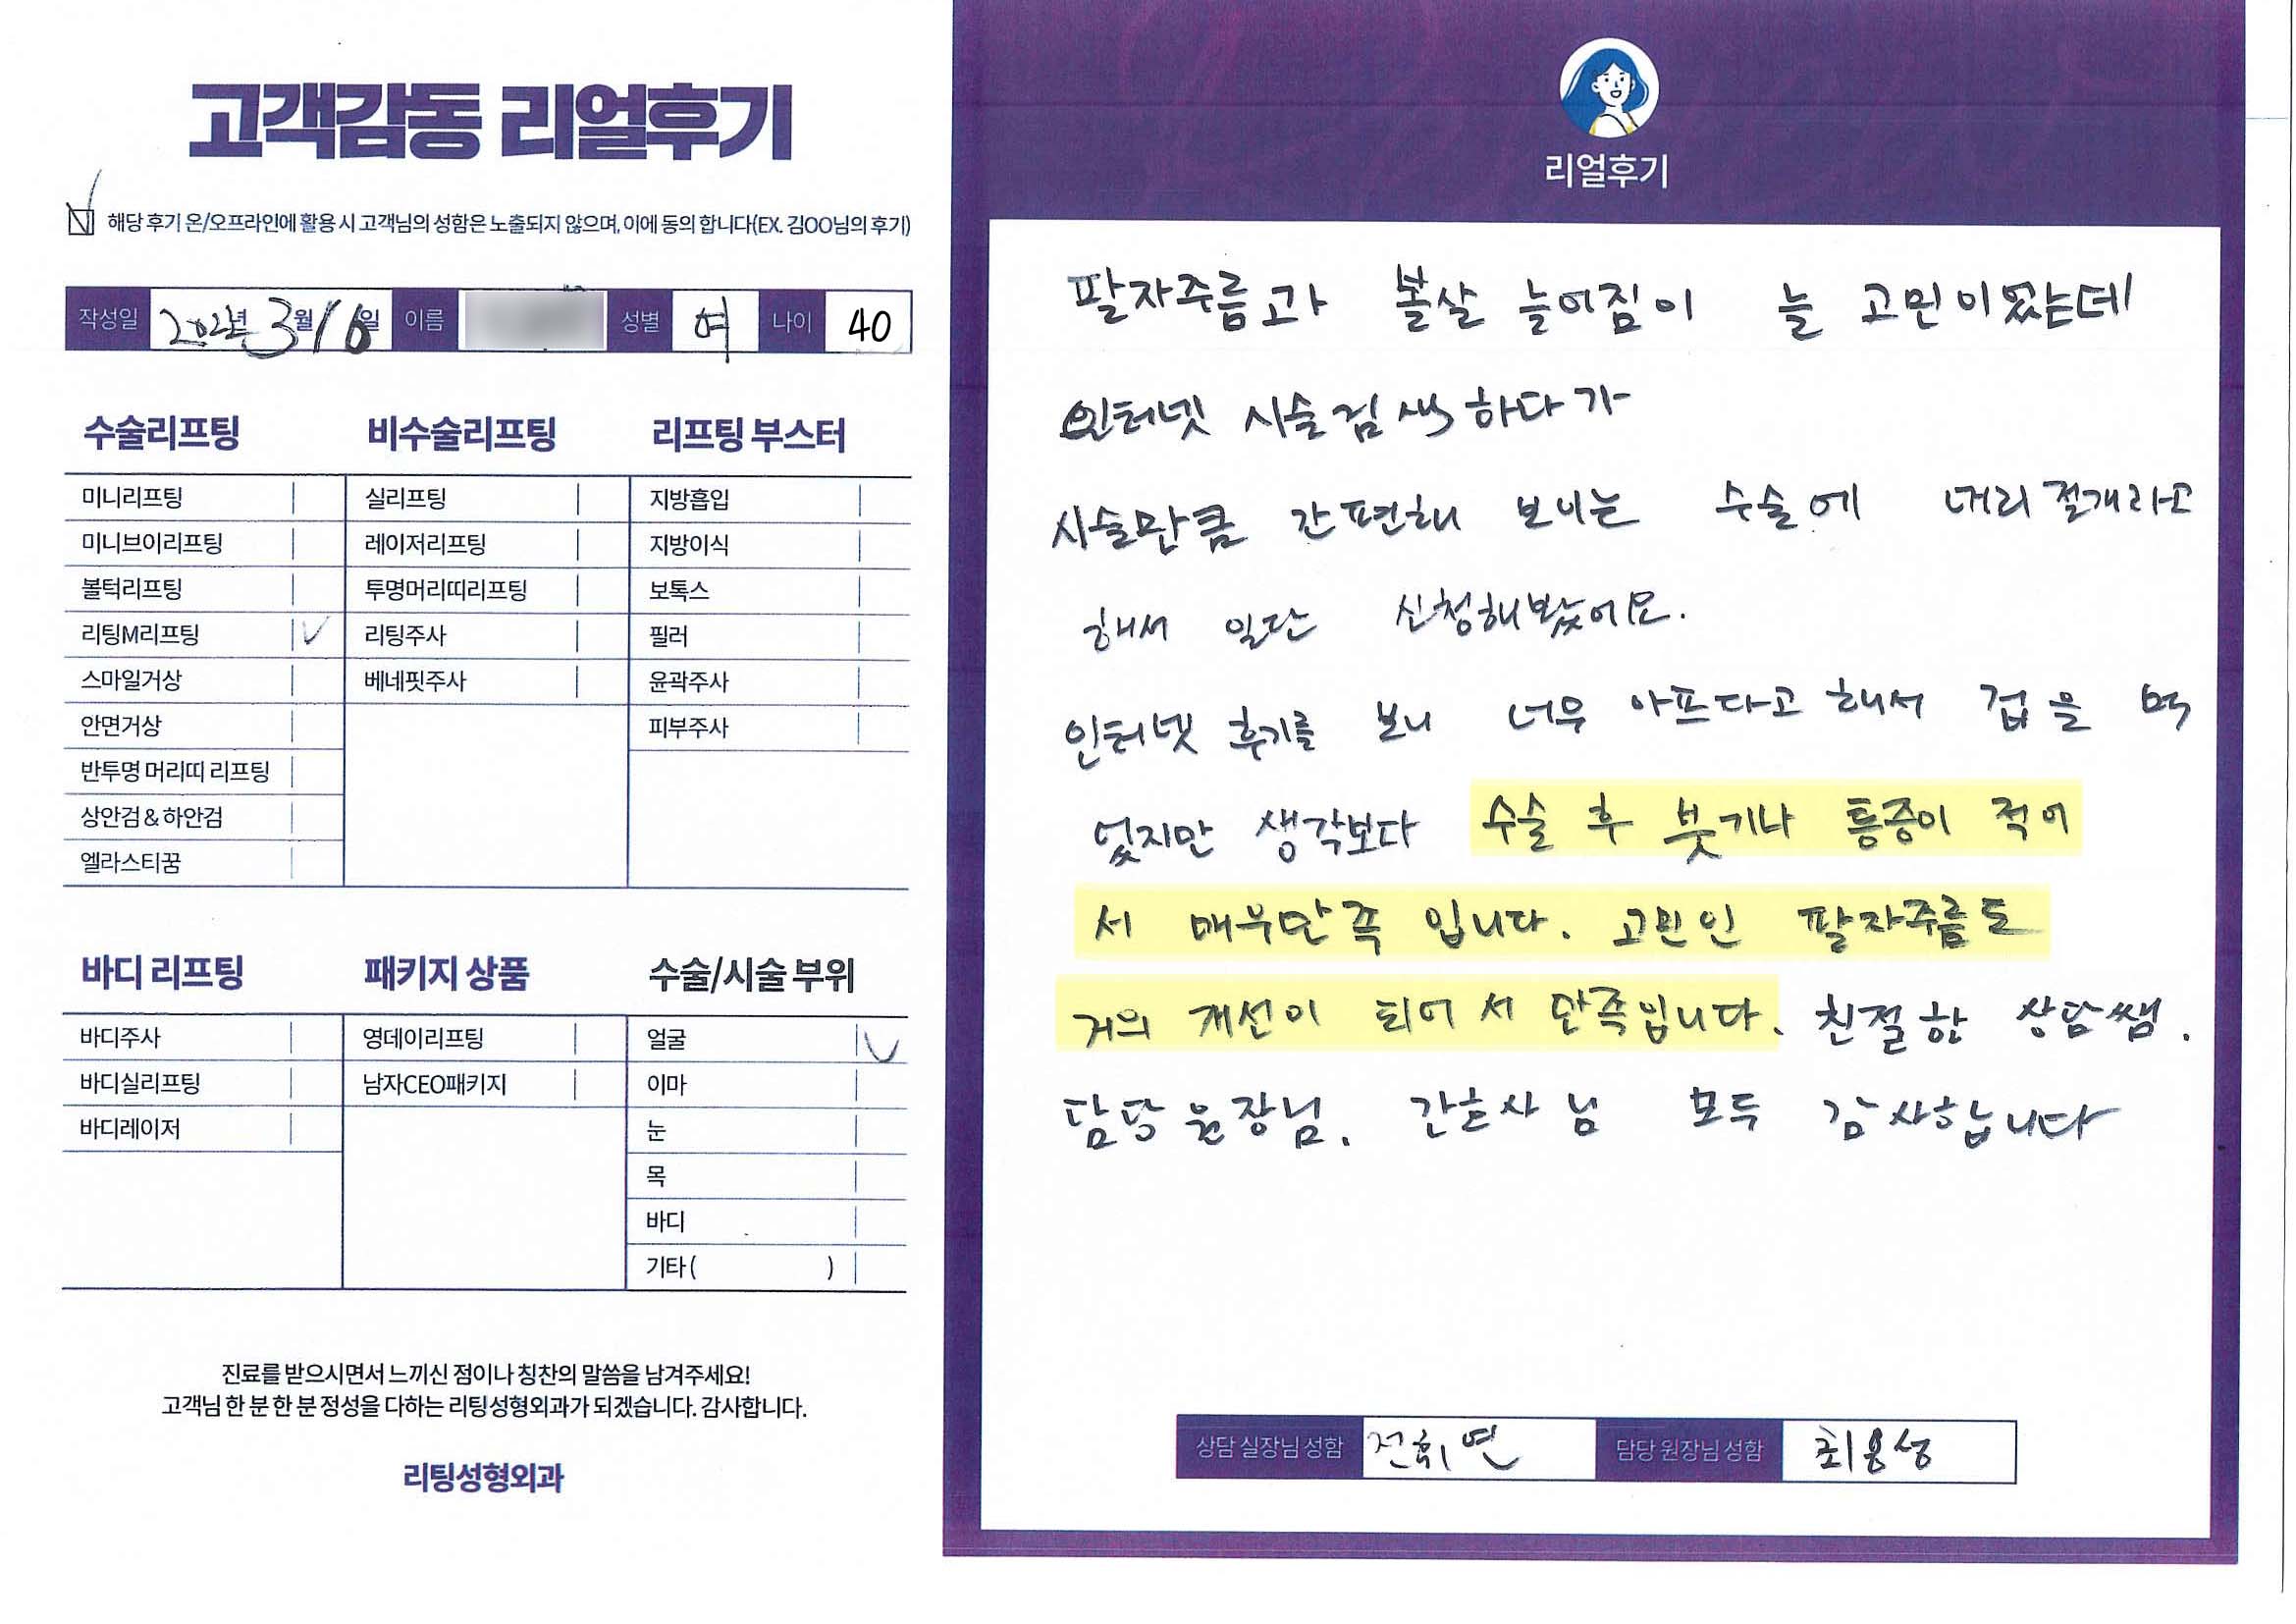 고객감동 리얼후기
해당 후기 온/오프라인에 활용 시 고객님의 성함은 노출되지 않으며, 이에 동의 합니다(EX. 김OO님의 후기)
작성일 년 3월 16일 이름 성별 여 나이 40
수술리프팅
미니리프팅
미니브이리프팅
볼턱리프팅
리팅M리프팅
스마일거상
안면거상
반투명 머리띠 리프팅
상안검 & 하안검
엘라스티꿈
비수술리프팅
실리프팅
레이저리프팅
투명머리띠리프팅
리팅주사
베네핏주사
리프팅 부스터
지방흡입
지방이식
보톡스
필러
윤곽주사
피부주사
바디 리프팅
바디주사
바디실리프팅
바디레이저
패키지 상품
영데이리프팅
남자CEO패키지
수술/시술 부위
얼굴
이마
눈
목
바디
기타 ( )
진료를 받으시면서 느끼신 점이나 칭찬의 말씀을 남겨주세요!
고객님 한 분 한 분 정성을 다하는 리팅성형외과가 되겠습니다. 감사합니다.
리팅성형외과
리얼후기
팔자주름과 볼살 늘어짐이 늘 고민이었는데
인터넷 시술검색하다가
시술만큼 간편해 보이는 수술에 머리절개라고
해서 일단 신청해봤어요.
인터넷 후기를 보니 너무 아프다고 해서 겁을 먹
었지만 생각보다 수술 후 붓기나 통증이 적어
서 매우만족 입니다. 고민인 팔자주름도
거의 개선이 되어서 만족입니다. 친절한 상담쌤.
담당 원장님. 간호사님 모두 감사합니다
상담 실장님 성함 전휘연 담당 원장님 성함 최용성